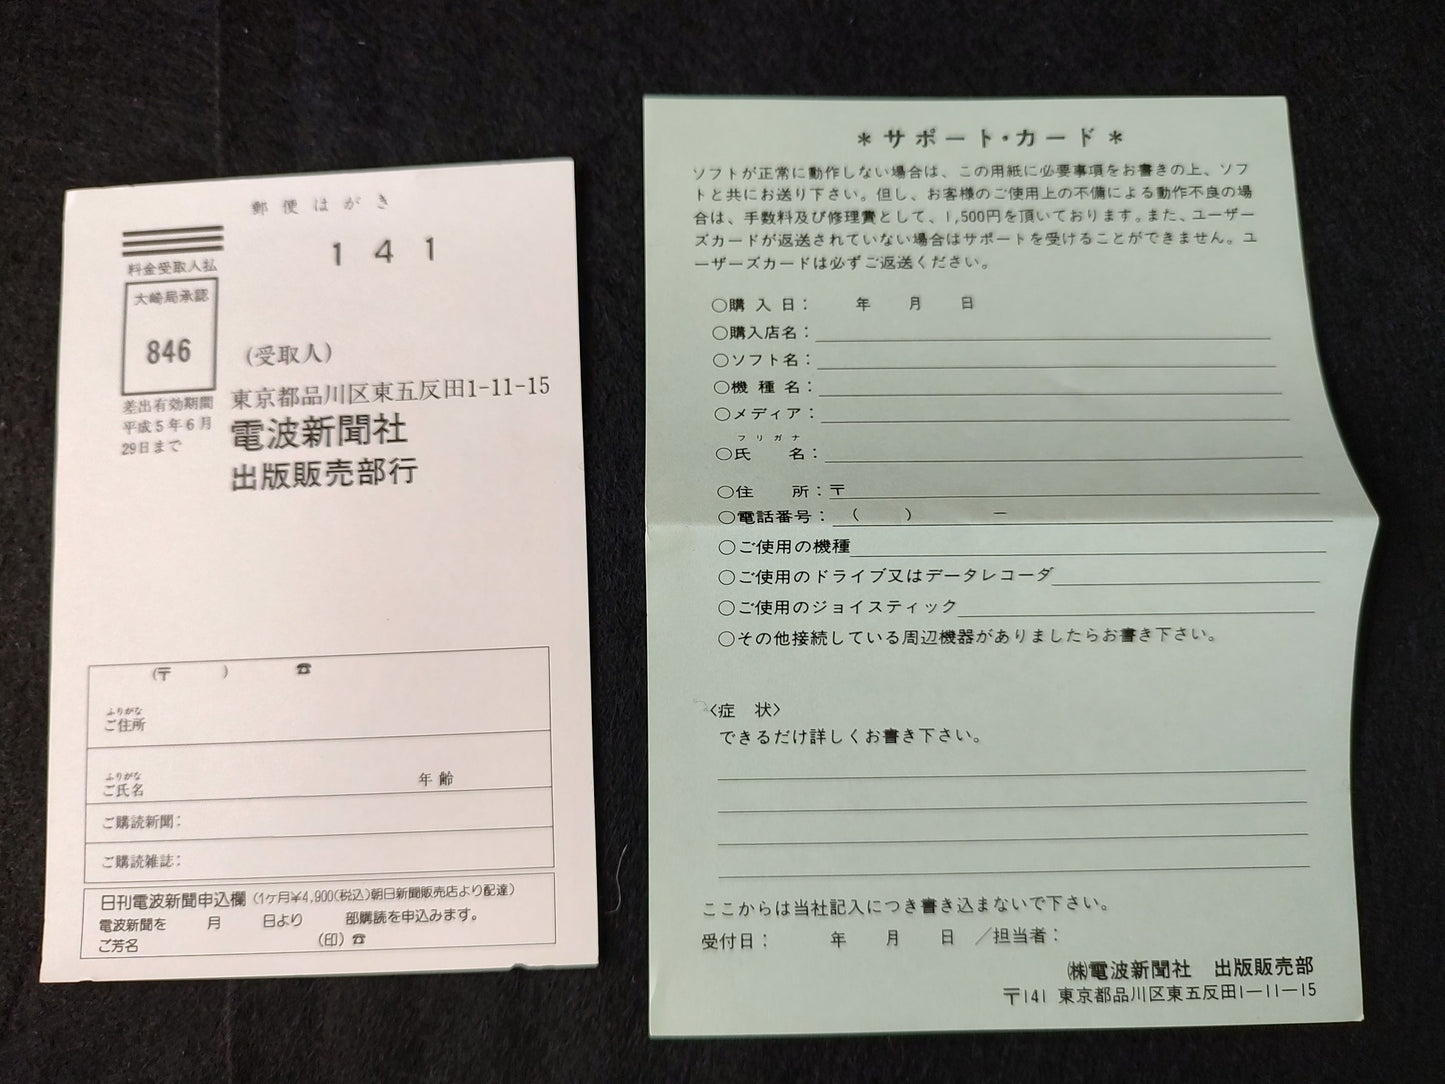 郵便はがき
141
料金受取人払
大崎局承認
846
差出有効期間
平成5年6月
29日まで
(受取人)
東京都品川区東五反田1-11-15
電波新聞社
出版販売部行
(〒　　　) ☎
ふりがな
ご住所
ふりがな
ご氏名　年齢
ご購読新聞：
ご購読雑誌：
日刊電波新聞申込欄（1ヶ月￥4,900(税込)朝日新聞販売店より配達）
電波新聞を　月　日より　部購読を申込みます。
ご芳名　(印) ☎
＊サポート・カード＊
ソフトが正常に動作しない場合は、この用紙に必要事項をお書きの上、ソフ
トと共にお送り下さい。但し、お客様のご使用上の不備による動作不良の場
合は、手数料及び修理費として、1,500円を頂いております。また、ユーザー
ズカードが返送されていない場合はサポートを受けることができません。ユ
ーザーズカードは必ずご返送ください。
○購入日：　年　月　日
○購入店名：
○ソフト名：
○機種名：
○メディア：
フリガナ
○氏　名：
○住　所：〒
○電話番号：（　　）　　－
○ご使用の機種
○ご使用のドライブ又はデータレコーダ
○ご使用のジョイスティック
○その他接続している周辺機器がありましたらお書き下さい。
〈症　状〉
できるだけ詳しくお書き下さい。
ここからは当社記入につき書き込まないで下さい。
受付日：　年　月　日　／担当者：
㈱電波新聞社　出版販売部
〒141 東京都品川区東五反田1－11－15